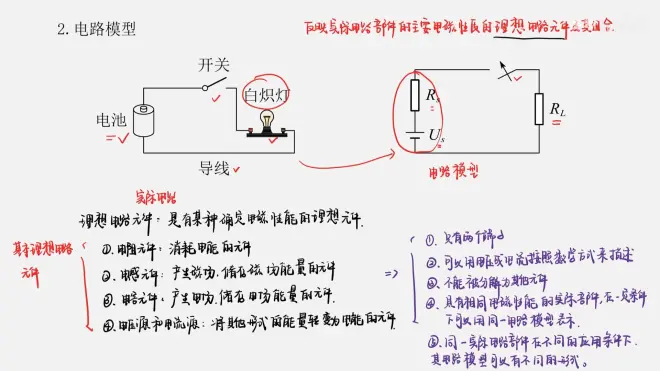 2. 电路模型
反映实际电路部件的主要电磁性质的理想电路元件及其组合.
开关
白炽灯
电池
导线
Rs
Us
RL
电路模型
实际电路
理想电路元件: 具有某种确定电磁性能的理想元件.
基本理想电路
元件
①. 电阻元件: 消耗电能的元件
②. 电感元件: 产生磁场, 储存磁场能量的元件
③. 电容元件: 产生电场, 储存电场能量的元件.
④. 电压源和电流源: 将其他形式的能量转变为电能的元件
①. 只有两个端子
②. 可以用电压或电流按照数学方式来描述
③. 不能被分解为其他元件
④. 具有相同电磁性能的实际部件, 在一定条件
下可以用同一电路模型表示.
⑤. 同一实际电路部件在不同的应用条件下,
其电路模型可以有不同的形式。